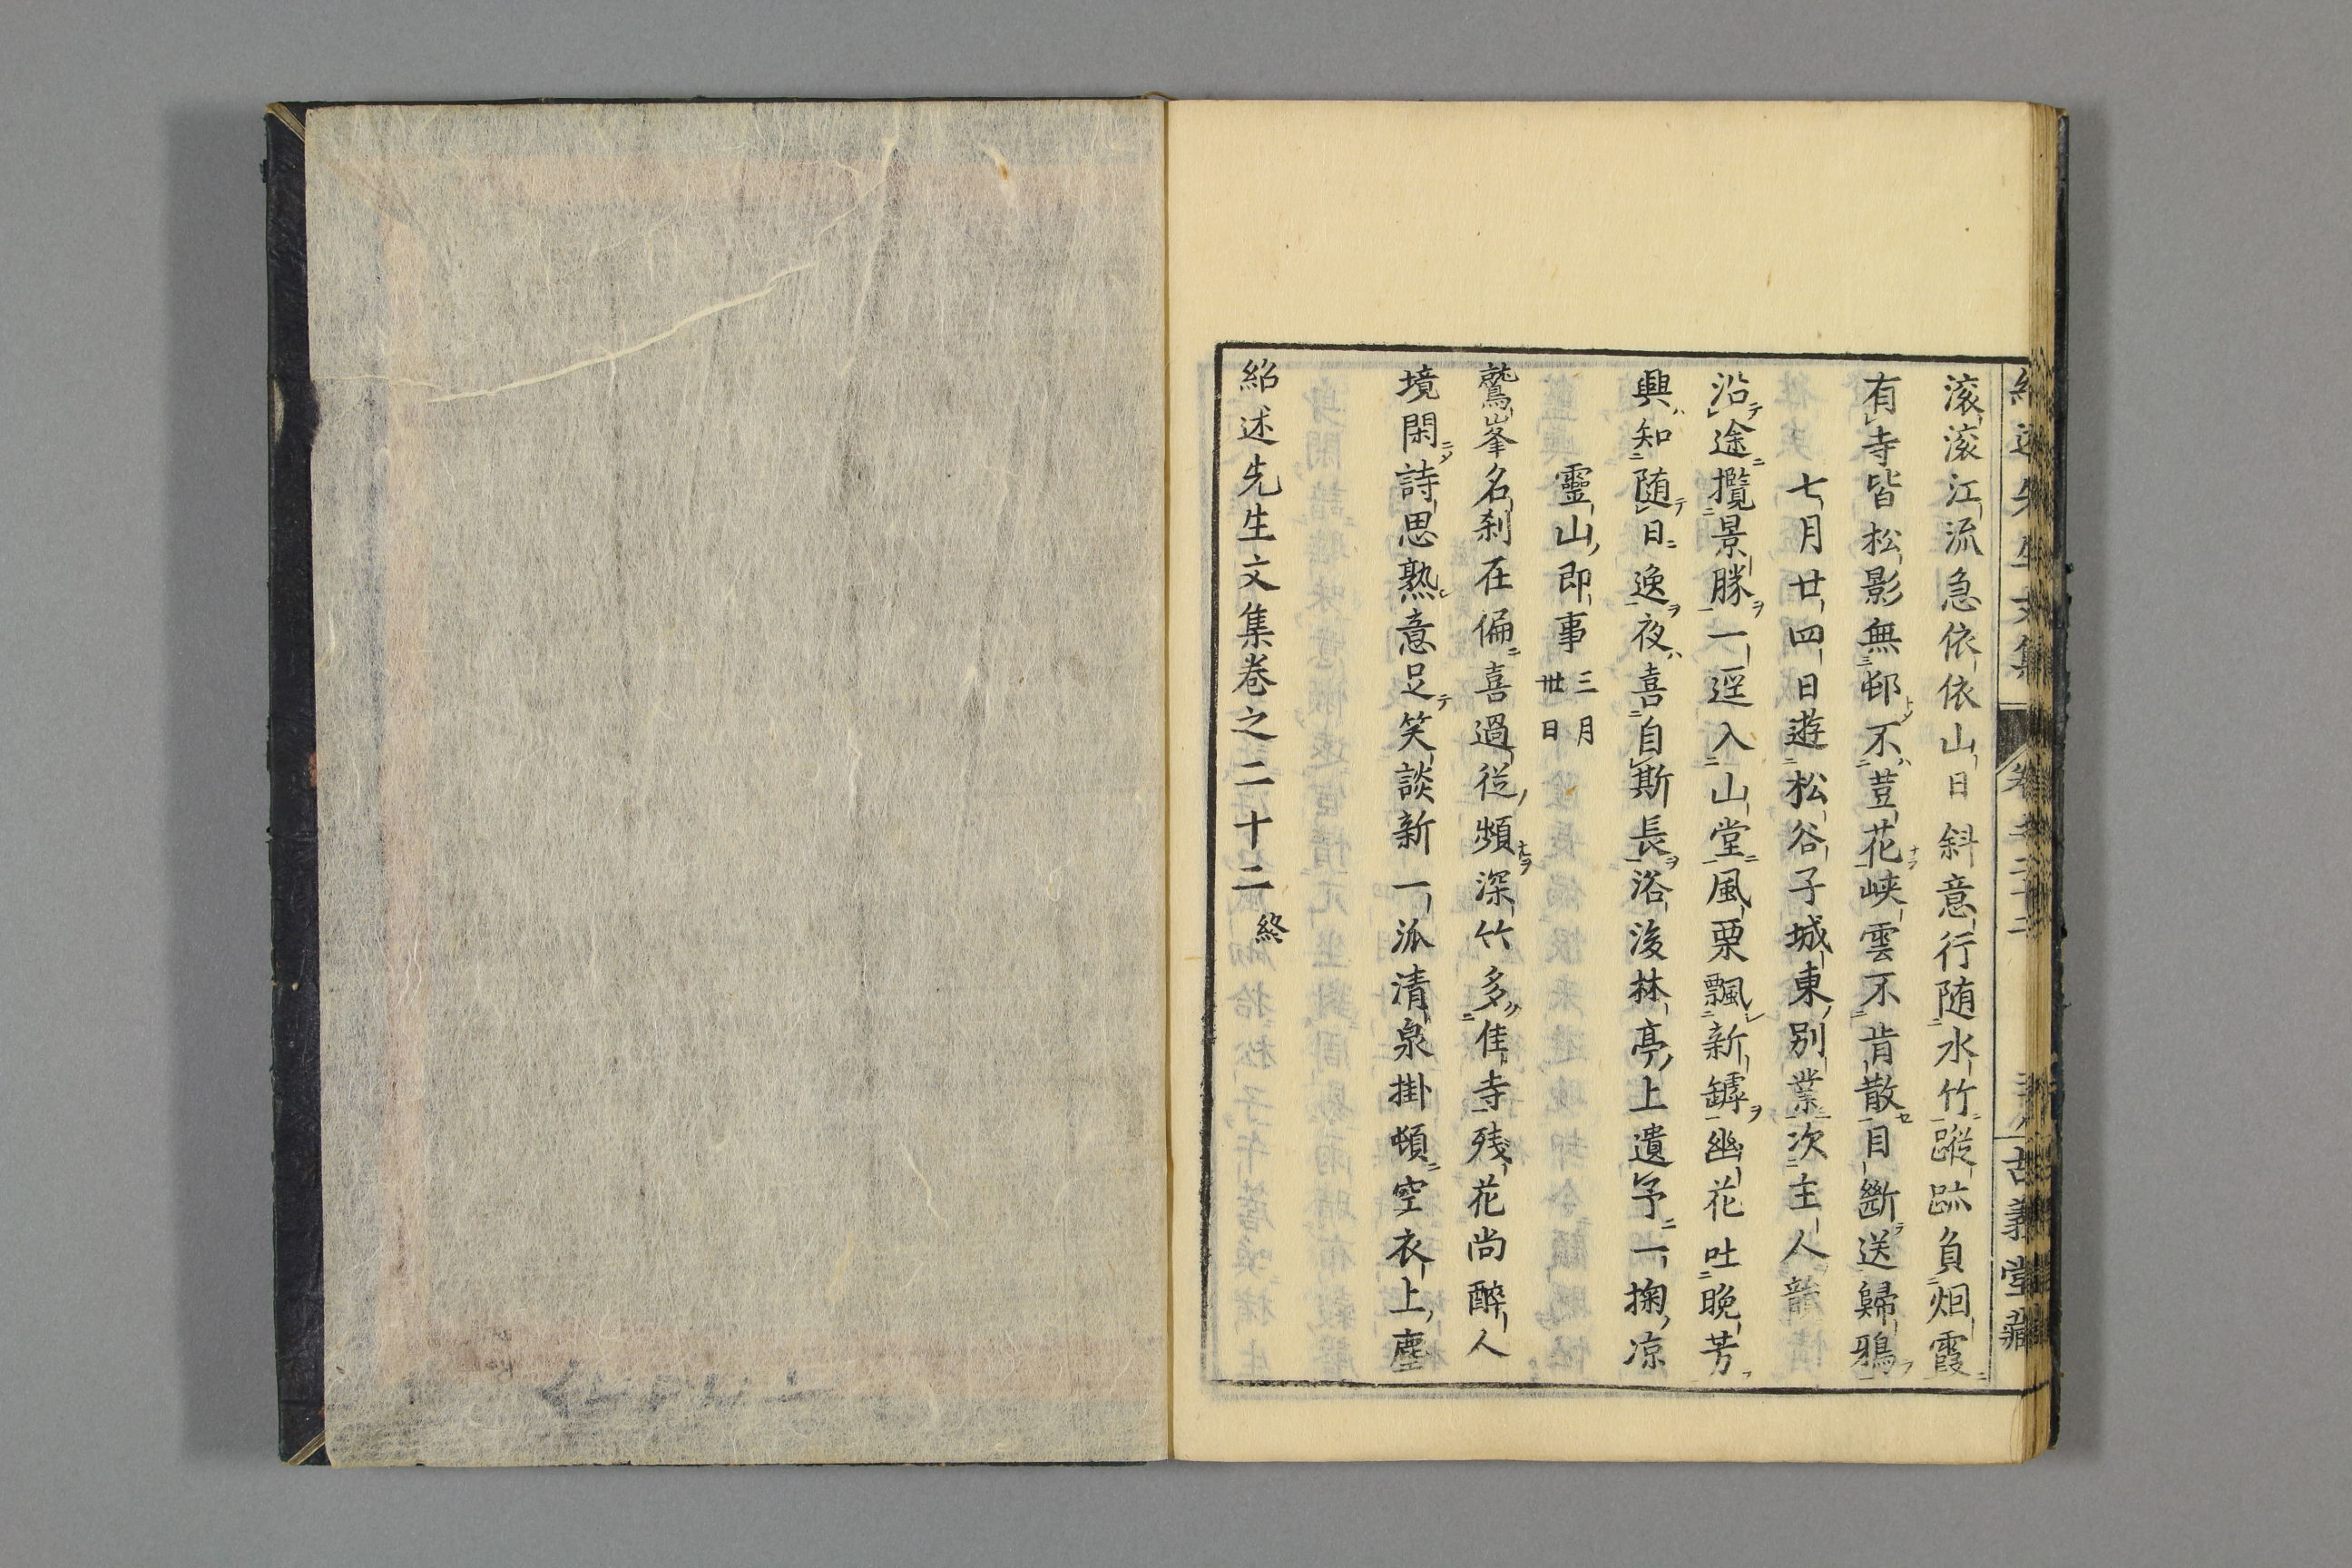 滚滚江流急依依山日斜意行随水竹蹤跡負烟霞
有寺皆松影無邨不荳花峽雲不肯散目斷送歸鴉
七月廿四日遊松谷子城東別業次主人韻
沿途攬景勝一逕入山堂風栗飄新罅幽花吐晚芳
興知随日逸夜喜自斯長浴後林亭上遺予一掬凉
靈山即事 三月卅日
鷲峯名刹在偏喜過從頻深竹多佳寺残花尚醉人
境閑詩思熟意足笑談新一派清泉掛頓空衣上塵
紹述先生文集巻之二十二 終
古義堂藏